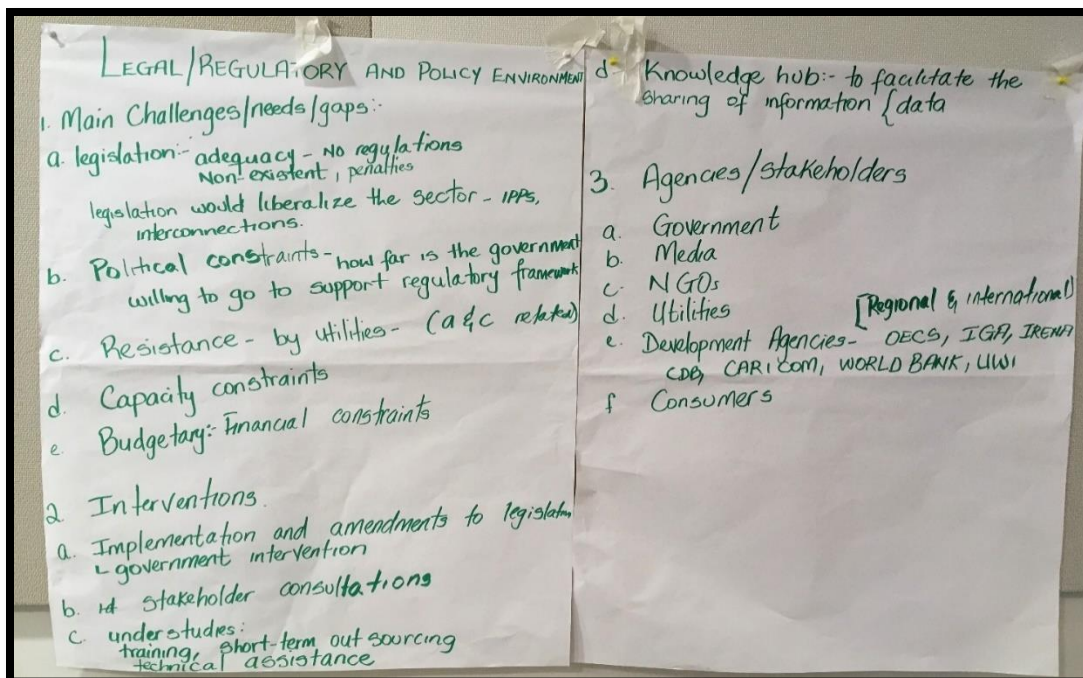 LEGAL/REGULATORY AND POLICY ENVIRONMENT
1. Main Challenges/needs/gaps:-
a. legislation:- adequacy - No regulations
Non-existent, penalties
legislation would liberalize the sector - IPPs,
interconnections.
b. Political constraints - how far is the government
willing to go to support regulatory framework
c. Resistance - by utilities - (a & c related)
d. Capacity constraints
e. Budgetary:- Financial constraints
2 Interventions.
a. Implementation and amendments to legislation
government intervention
b. stakeholder consultations
c. understudies:
training, short-term out sourcing
technical assistance
d- Knowledge hub:- to facilitate the
sharing of information & data
3. Agencies/stakeholders
a. Government
b. Media
c. NGOs
d. Utilities
[Regional & international]
e. Development Agencies- OECS, IGA, IRENA
CDB, CARICOM, WORLD BANK, UWI
f Consumers